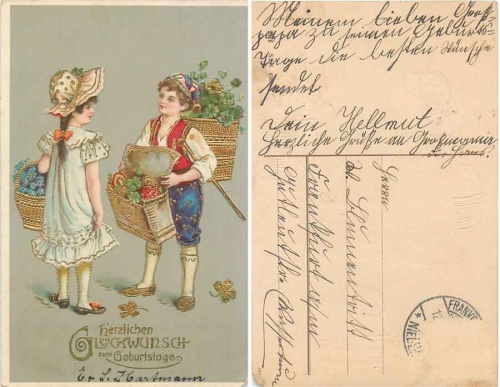 Herzlichen
Glückwunsch
zum Geburtstage
Hartmann
Meinem lieben Gross-
papa zu seinem Geburts-
tage die besten Wünsche
sendet
Dein Hellmut
Herzliche Grüße an Grossmama
Herrn
Blumentritt
Frankfurt a/m